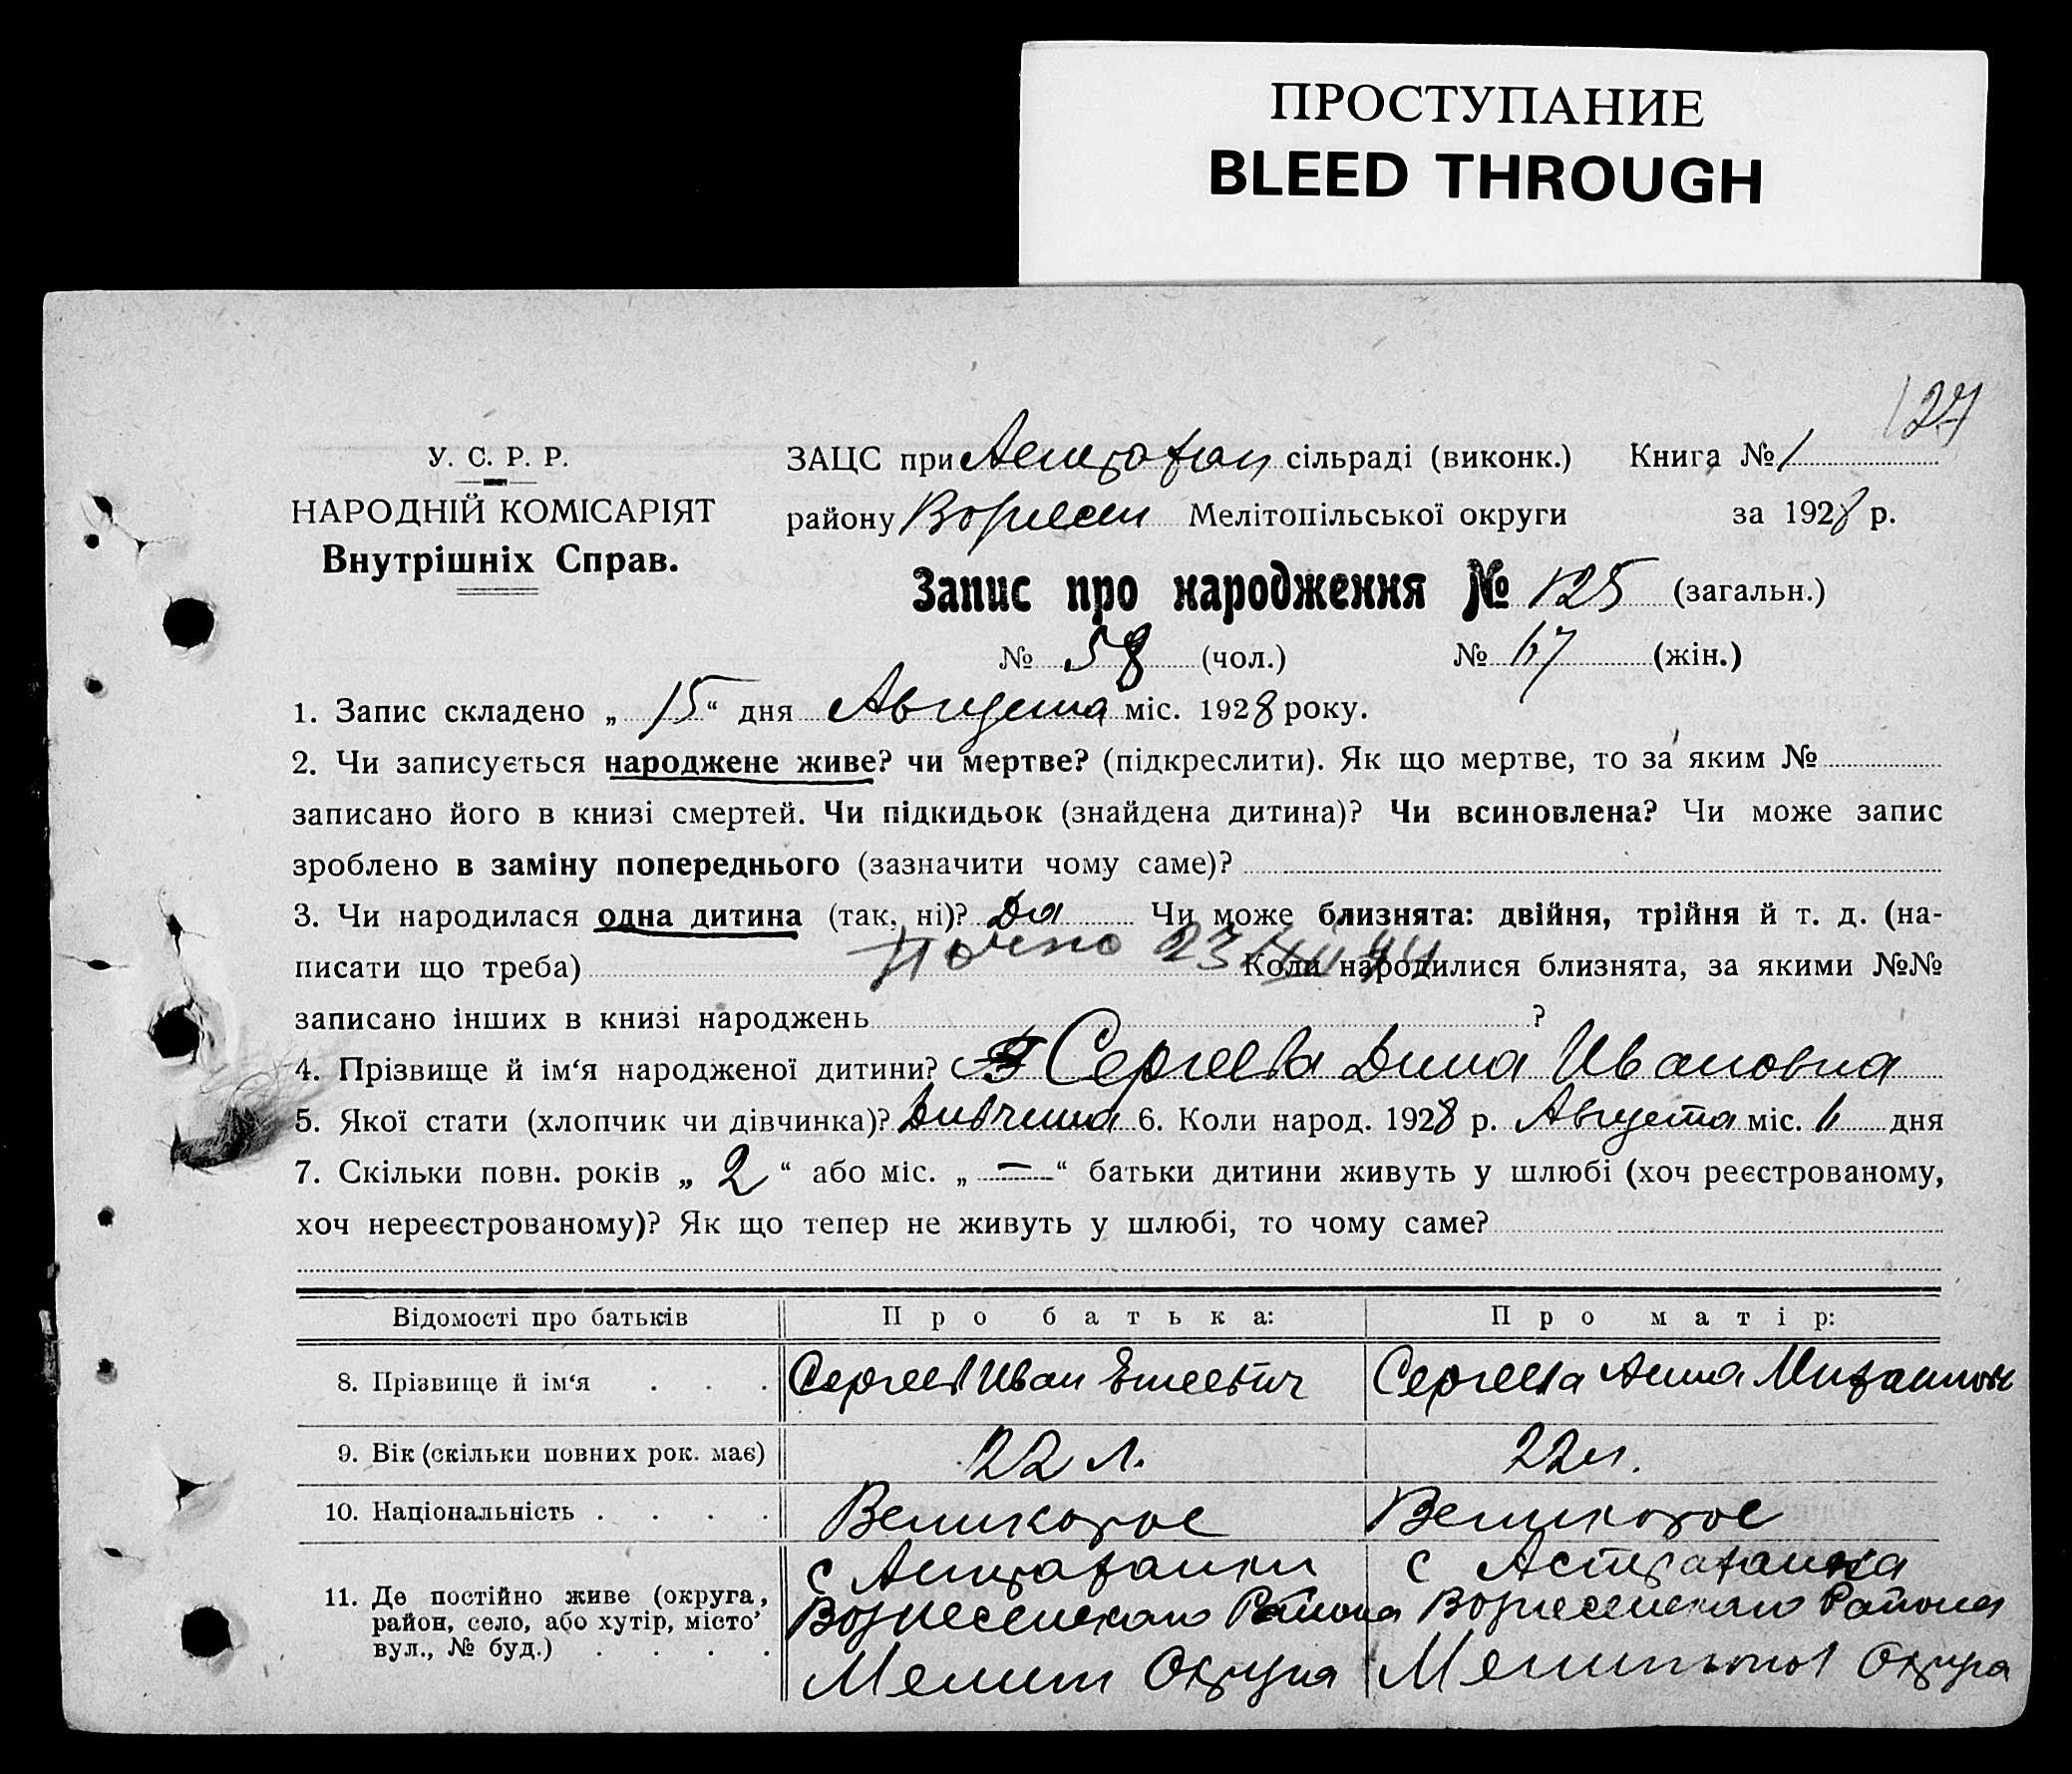 ПРОСТУПАНИЕ
BLEED THROUGH
127
У. С. Р. Р.
НАРОДНІЙ КОМІСАРІЯТ
Внутрішніх Справ.
ЗАЦС при Астрахан сільраді (виконк.) Книга № 1
району Вознесен Мелітопільської округи за 1928 р.
Запис про народження № 125 (загальн.)
№ 58 (чол.) № 67 (жін.)
1. Запис складено „ 15 “ дня Августа міс. 1928 року.
2. Чи записується народжене живе? чи мертве? (підкреслити). Як що мертве, то за яким №
записано його в книзі смертей. Чи підкидьок (знайдена дитина)? Чи всиновлена? Чи може запис
зроблено в заміну попереднього (зазначити чому саме)?
3. Чи народилася одна дитина (так, ні)? Да Чи може близнята: двійня, трійня й т. д. (на-
писати що треба) Коли народилися близнята, за якими №№
записано інших в книзі народжень ?
4. Прізвище й ім‘я народженої дитини? Сергеева Дина Ивановна
5. Якої стати (хлопчик чи дівчинка)? 6. Коли народ. 1928 р. Августа міс. дня
7. Скільки повн. років „ 2 “ або міс. „ — “ батьки дитини живуть у шлюбі (хоч реєстрованому,
хоч нереєстрованому)? Як що тепер не живуть у шлюбі, то чому саме?
Відомості про батьків Про батька: Про матір:
8. Прізвище й ім‘я . . . Сергеев Иван Сергеева Анна
9. Вік (скільки повних рок. має) 22 л. 22 л.
10. Національність . . . . Великорос Великорос
11. Де постійно живе (округа,
район, село, або хутір, місто
вул., № буд.) . . . .
с Астраханки
Вознесенскаго Района
Мелит Округа
с Астраханка
Вознесенскаго Района
Мелитопол Округа